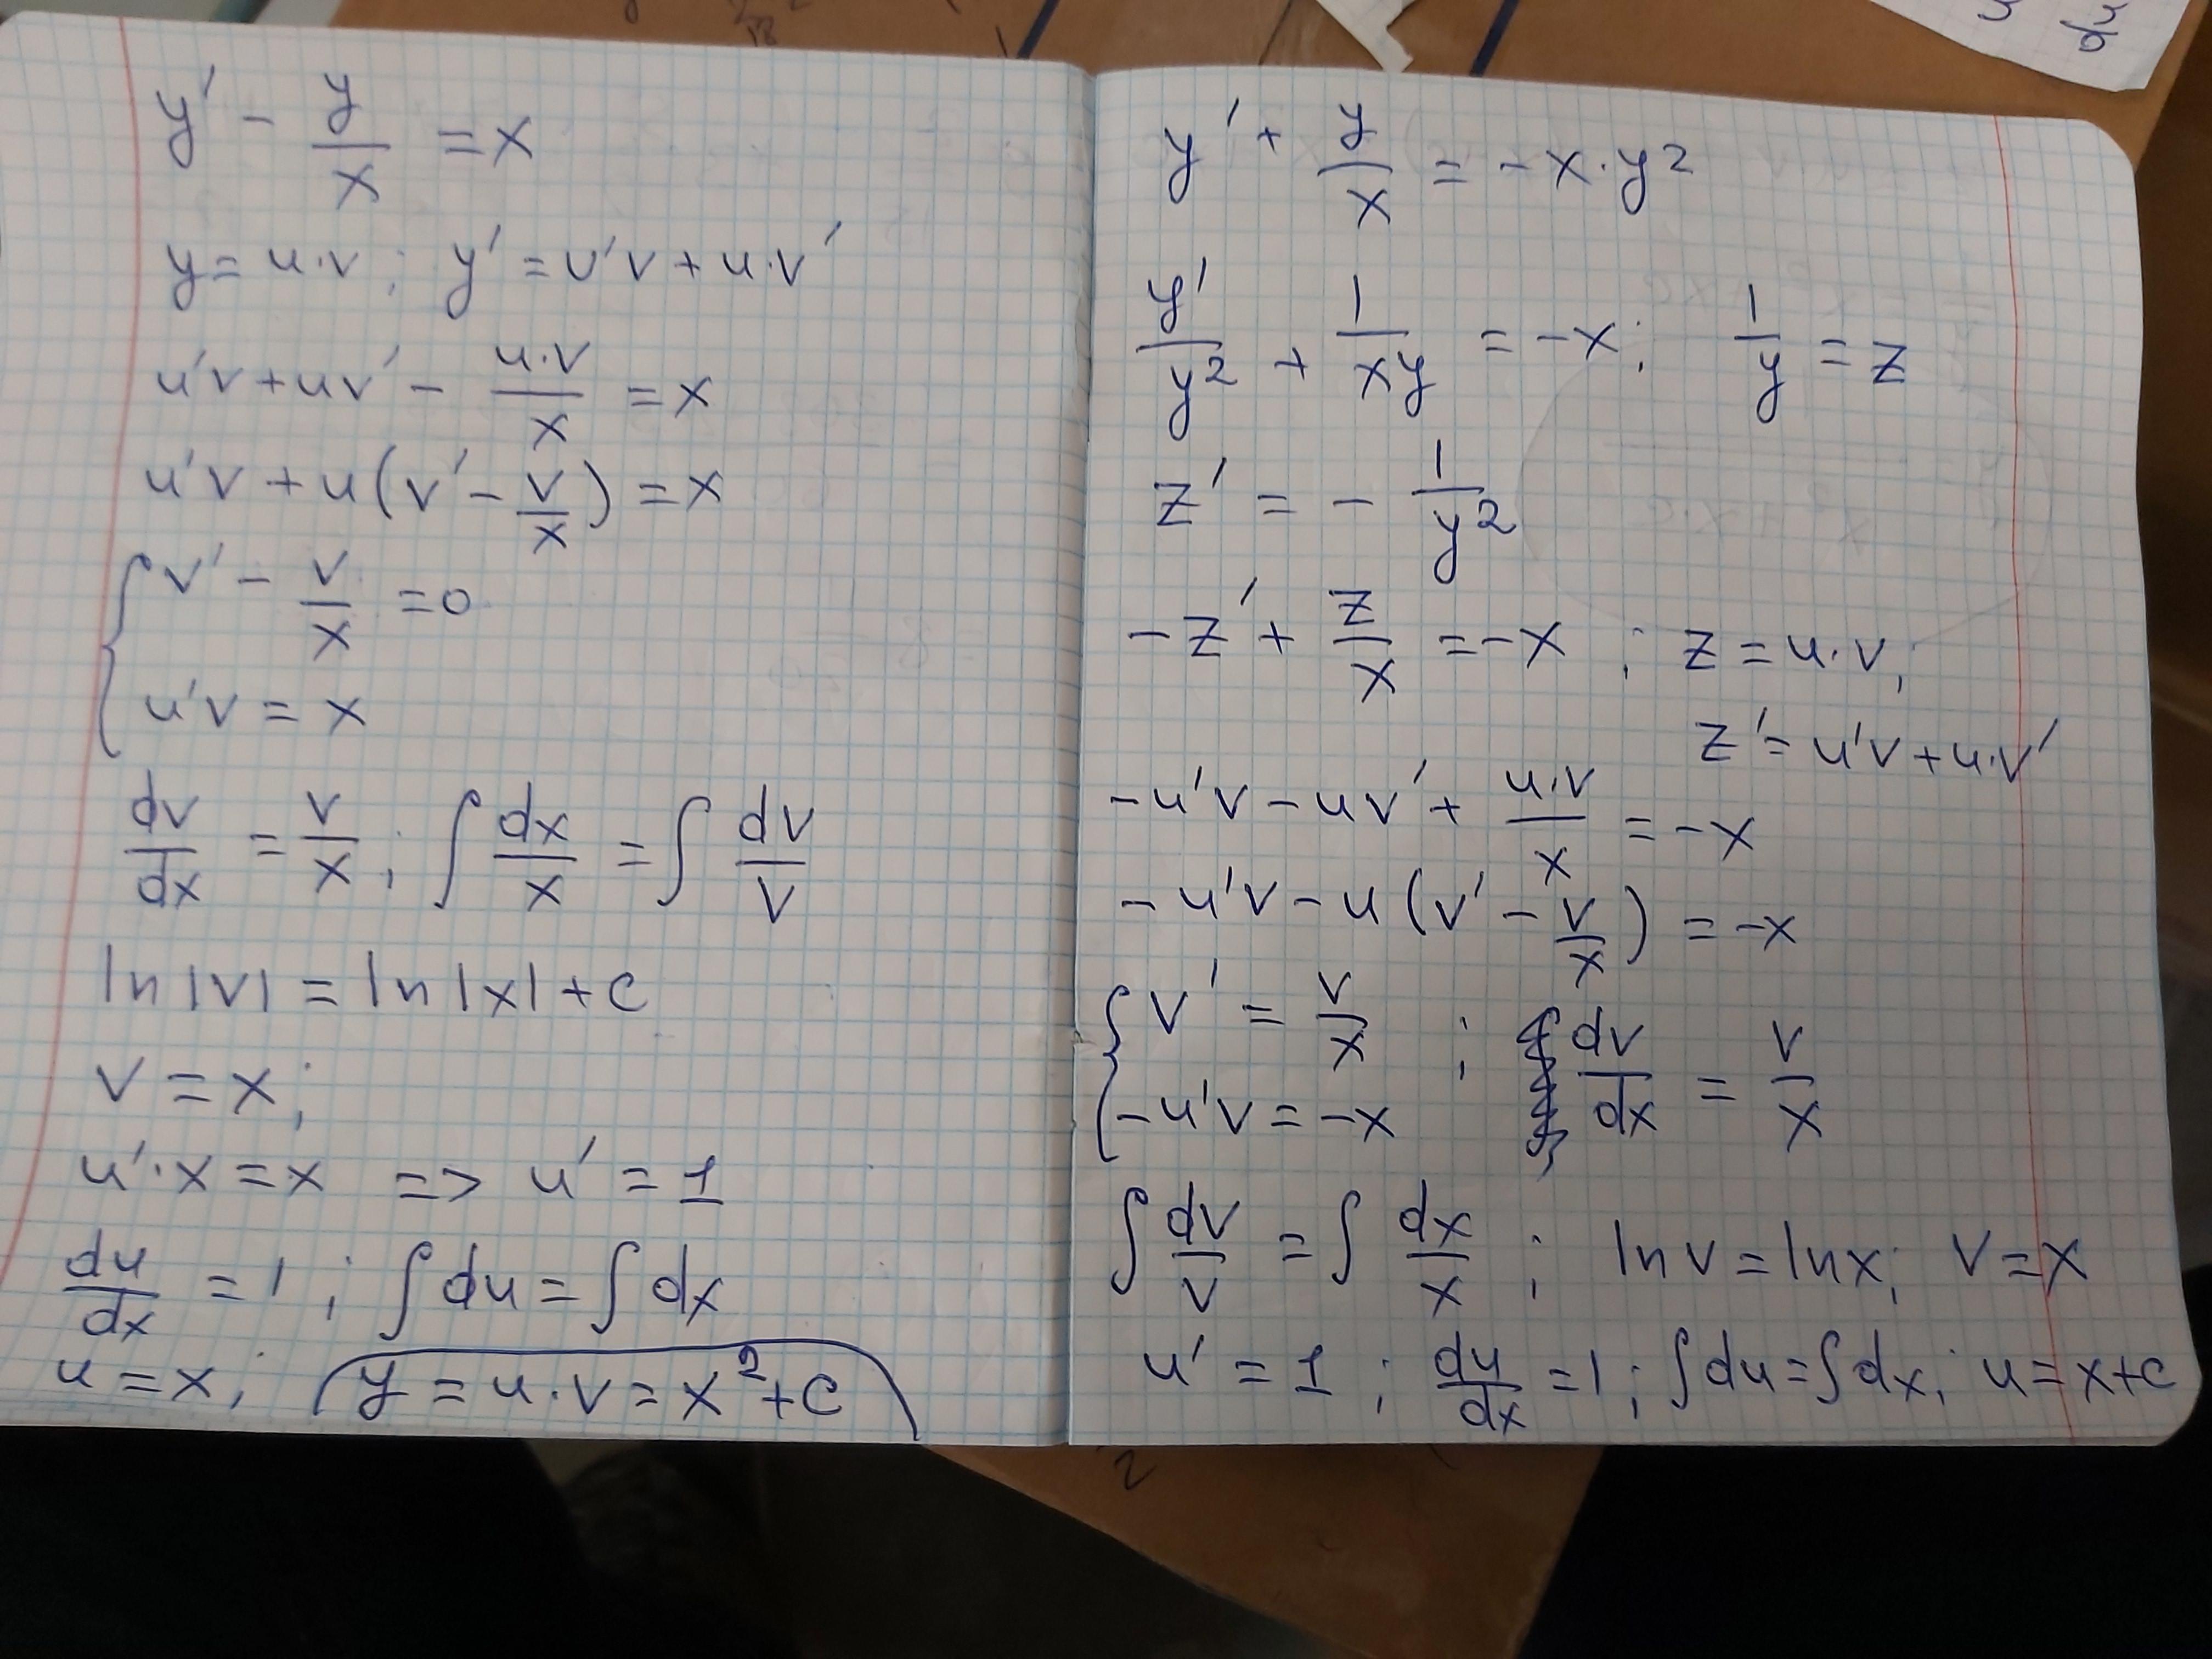 y' - y/x = x
y = u·v; y' = u'v + u·v'
u'v + uv' - u·v/x = x
u'v + u(v' - v/x) = x
{ v' - v/x = 0
u'v = x
dv/dx = v/x; ∫ dx/x = ∫ dv/v
ln|v| = ln|x| + c
v = x;
u'·x = x => u' = 1
du/dx = 1; ∫du = ∫dx
u = x; y = u·v = x² + c
y' + y/x = -x·y²
y'/y² + 1/xy = -x; 1/y = z
z' = - 1/y²
-z' + z/x = -x; z = u·v;
z' = u'v + u·v'
-u'v - uv' + u·v/x = -x
-u'v - u(v' - v/x) = -x
{ v' = v/x ; dv/dx = v/x
-u'v = -x
∫ dv/v = ∫ dx/x; ln v = ln x; v = x
u' = 1; du/dx = 1; ∫du = ∫dx; u = x + c